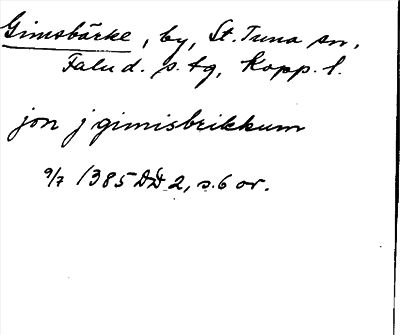 Gimsbärke, by, St. Tuna sn,
Falu d. s. tg, Kopp. l.
jon j gimisbrikkum
9/7 1385 DD 2, s. 6 or.